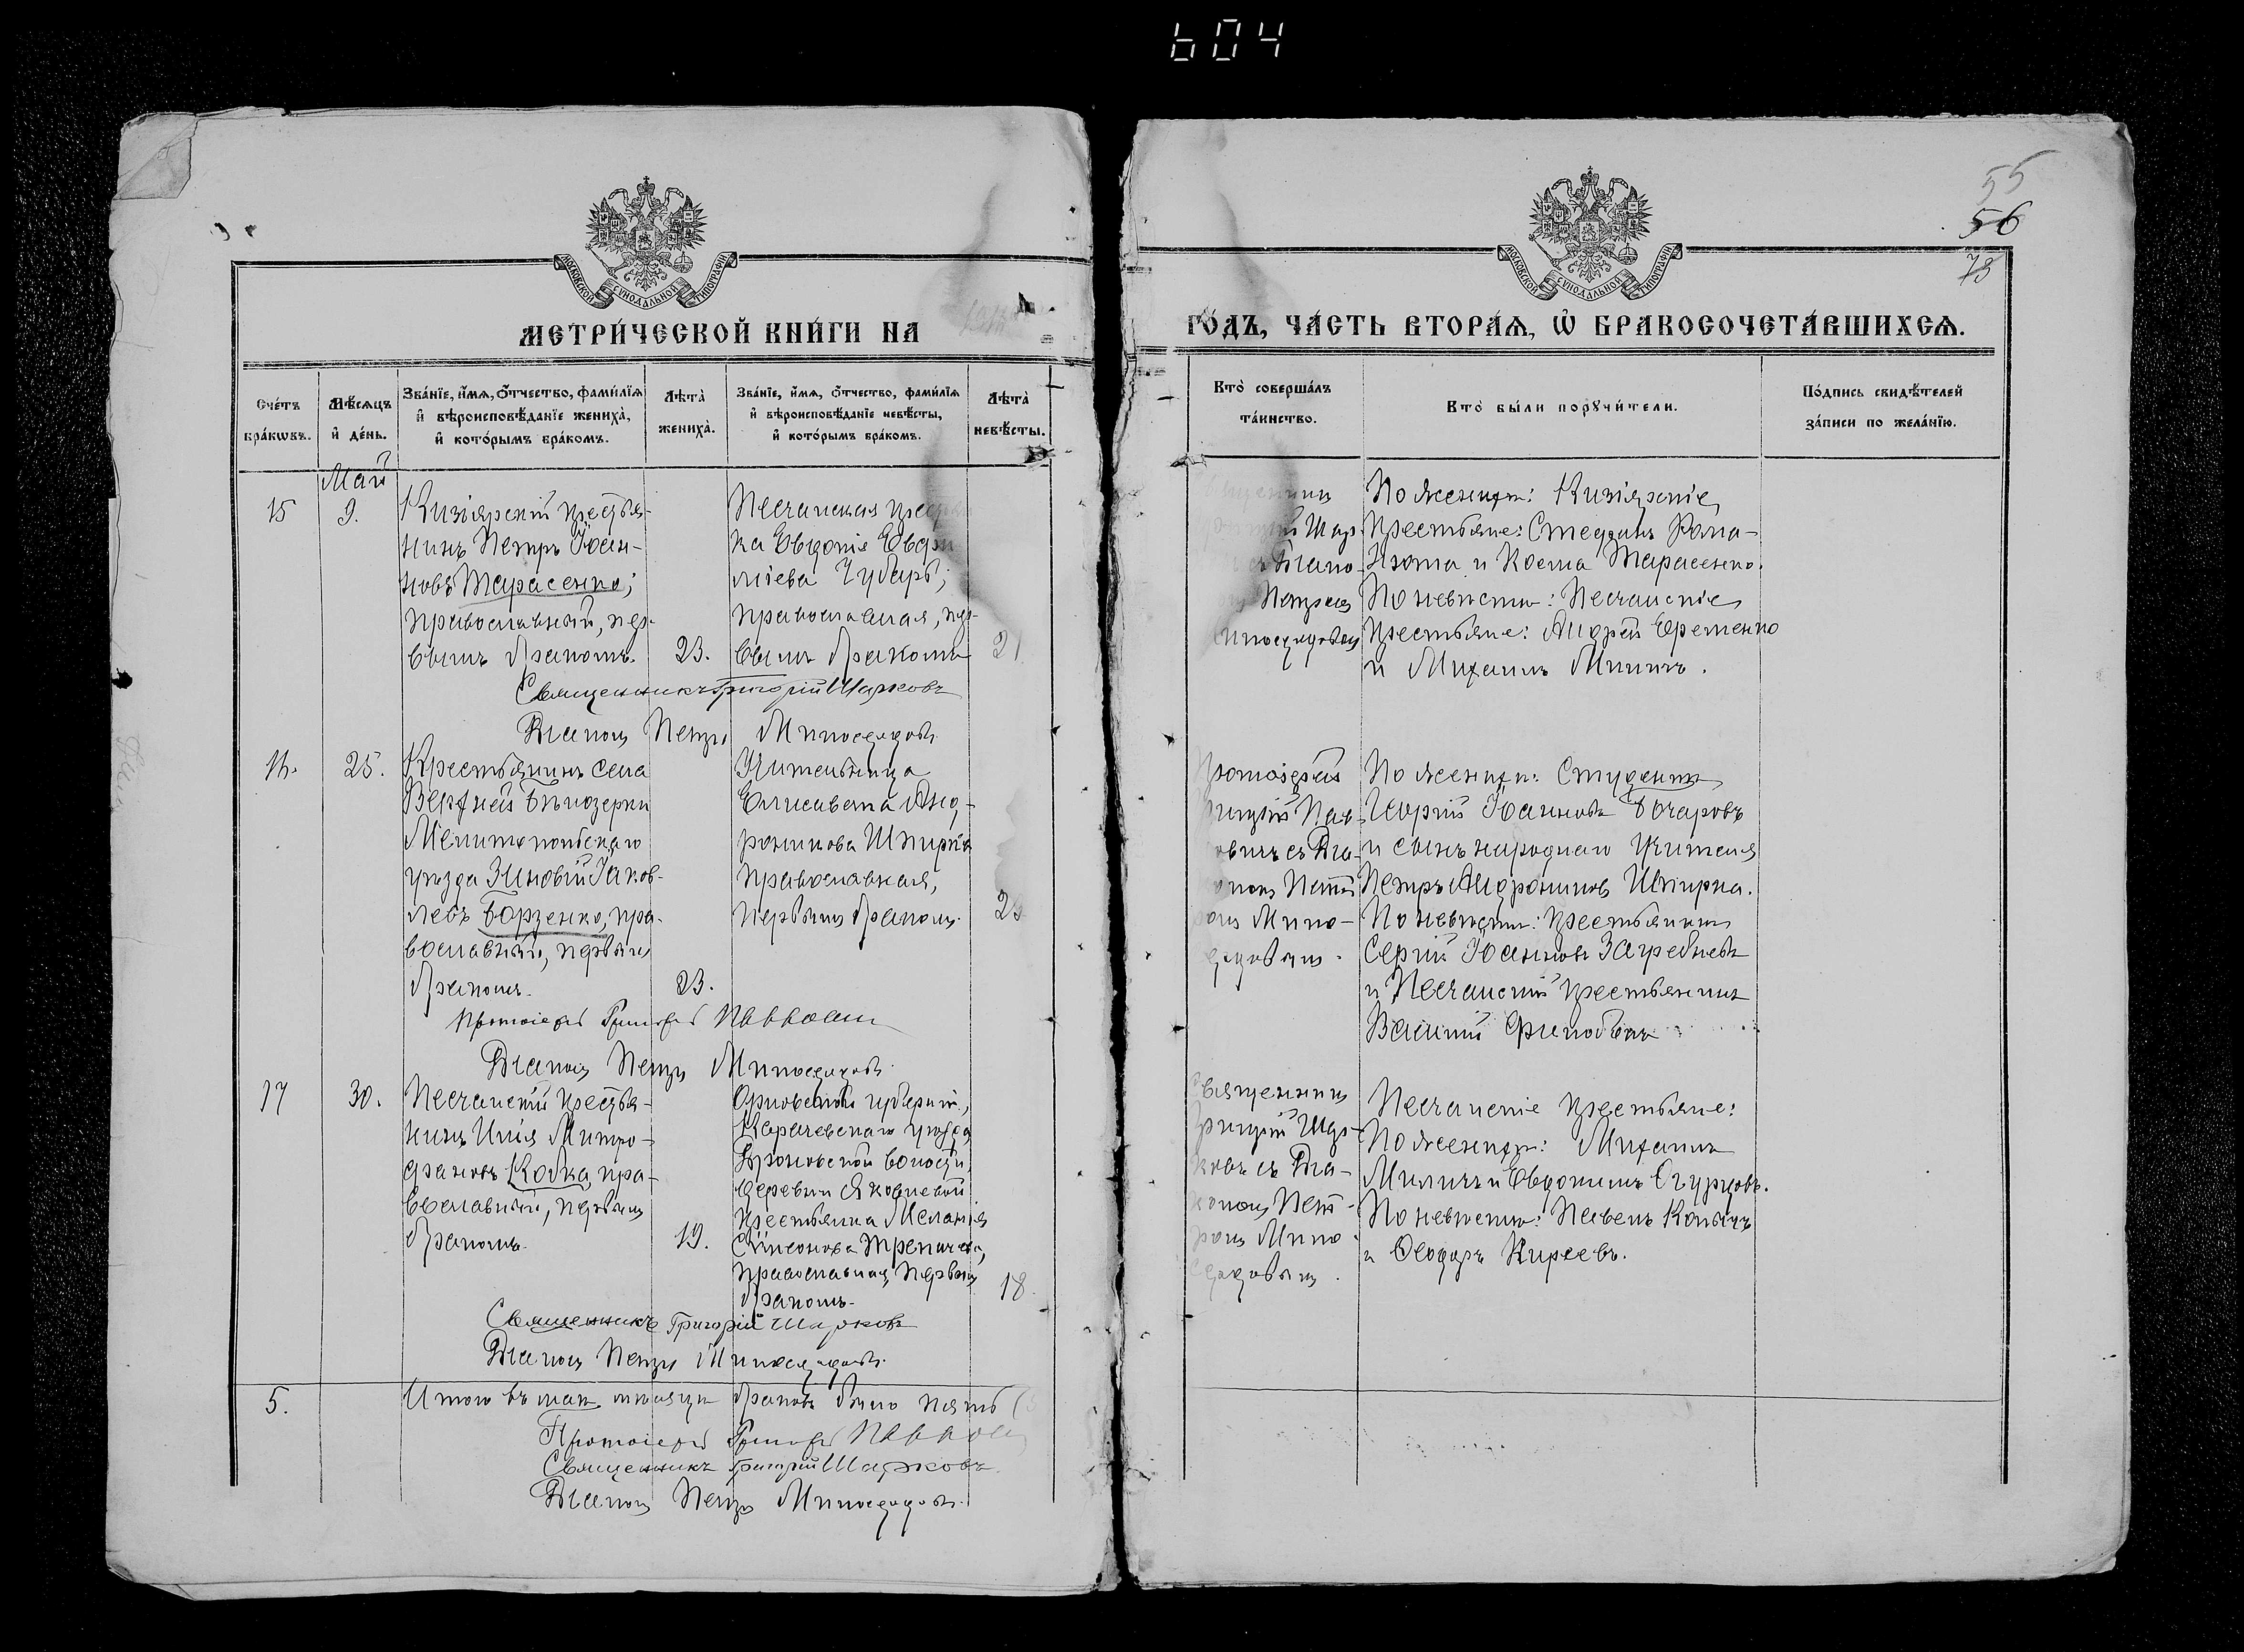 604
55
56
73
МОСКОВСКОЙ СѴНОДАЛЬНОЙ ТИПОГРАФІИ
МОСКОВСКОЙ СѴНОДАЛЬНОЙ ТИПОГРАФІИ
МЕТРИ́ЧЕСКОЙ КНИ́ГИ НА
ГО́ДЪ, ЧА́СТЬ ВТОРА́Ѧ, Ѽ БРАКОСОЧЕТА́ВШИХСѦ.
Сче́тъ бра́кѡвъ.
Мѣ́сѧцъ и҆ де́нь.
Зва́нїе, и҆́мѧ, ѻ҆́тчество, фами́лїѧ и҆ вѣроисповѣ́данїе жениха̀, и҆ кото́рымъ бра́комъ.
Лѣ́та жениха̀.
Зва́нїе, и҆́мѧ, ѻ҆́тчество, фами́лїѧ и҆ вѣроисповѣ́данїе невѣ́сты, и҆ кото́рымъ бра́комъ.
Лѣ́та невѣ́сты.
Кто̀ соверша́лъ та́инство.
Кто̀ бы́ли порꙋчи́тели.
По́дпись свидѣ́телей за́писи по жела́нїю.
Май
15
9.
Кизіярскій крестья-
нинъ Петръ Іоан-
новъ Тарасенко;
православный, пер-
вымъ бракомъ.
23.
Песчанская крестья
ка Евдокія Евдо
міева Чубаръ;
православная, пер-
вымъ бракомъ
21
Шар-
Діако-
Петромъ
Милосердовымъ
По женихѣ: Кизіярскіе
крестьяне: Стефанъ Рома-
нюта и Косма Тарасенко.
По невѣстѣ: Песчанскіе
крестьяне: Андрей Еременко
и Михаилъ Миличъ.
Священникъ Григорій Шарковъ
Діаконъ Петръ Милосердовъ
16.
25.
Крестьянинъ села
Верхней Бѣлозерки
Мелитопольскаго
уѣзда Зиновій Іаков-
левъ Борзенко, пра-
вославный, первымъ
бракомъ.
23.
Учительница
Елисавета Анд-
роникова Шпирка
православная,
первымъ бракомъ.
Протоіерей
Пав-
съ Діа-
кономъ Пет-
ромъ Мило-
сердовымъ.
По женихѣ: Студентъ
Георгій Іоанновъ Бочаровъ
и сынъ народнаго учителя
Петръ Андрониковъ Шпирка.
По невѣстѣ: крестьянинъ
Сергій Іоанновъ Загребневъ
и Песчанскій крестьянинъ
Протоіерей Григорій
Діаконъ Петръ Милосердовъ.
17
30.
Песчанскій крестья-
нинъ Илія Митро-
фановъ Кобка, пра-
вославный, первымъ
бракомъ.
19.
Орловской губерніи,
Карачевскаго уѣзда
волости,
деревни Яковлевой
крестьянка Меланія
Сімеонова
православная, первымъ
бракомъ.
18.
Священникъ
Григорій Шар-
ковъ съ Діа-
кономъ Пет-
ромъ Мило-
сердовымъ.
Песчанскіе крестьяне:
По женихѣ: Михаилъ
Миличъ и Евдокимъ Огурцовъ.
По невѣстѣ: Павелъ
и Ѳеодоръ Кирѣевъ.
Священникъ Григорій Шарковъ
Діаконъ Петръ Милосердовъ.
5.
Итого въ маѣ мѣсяцѣ браковъ было пять (
Протоіерей Григорій
Священникъ Григорій Шарковъ
Діаконъ Петръ Милосердовъ.